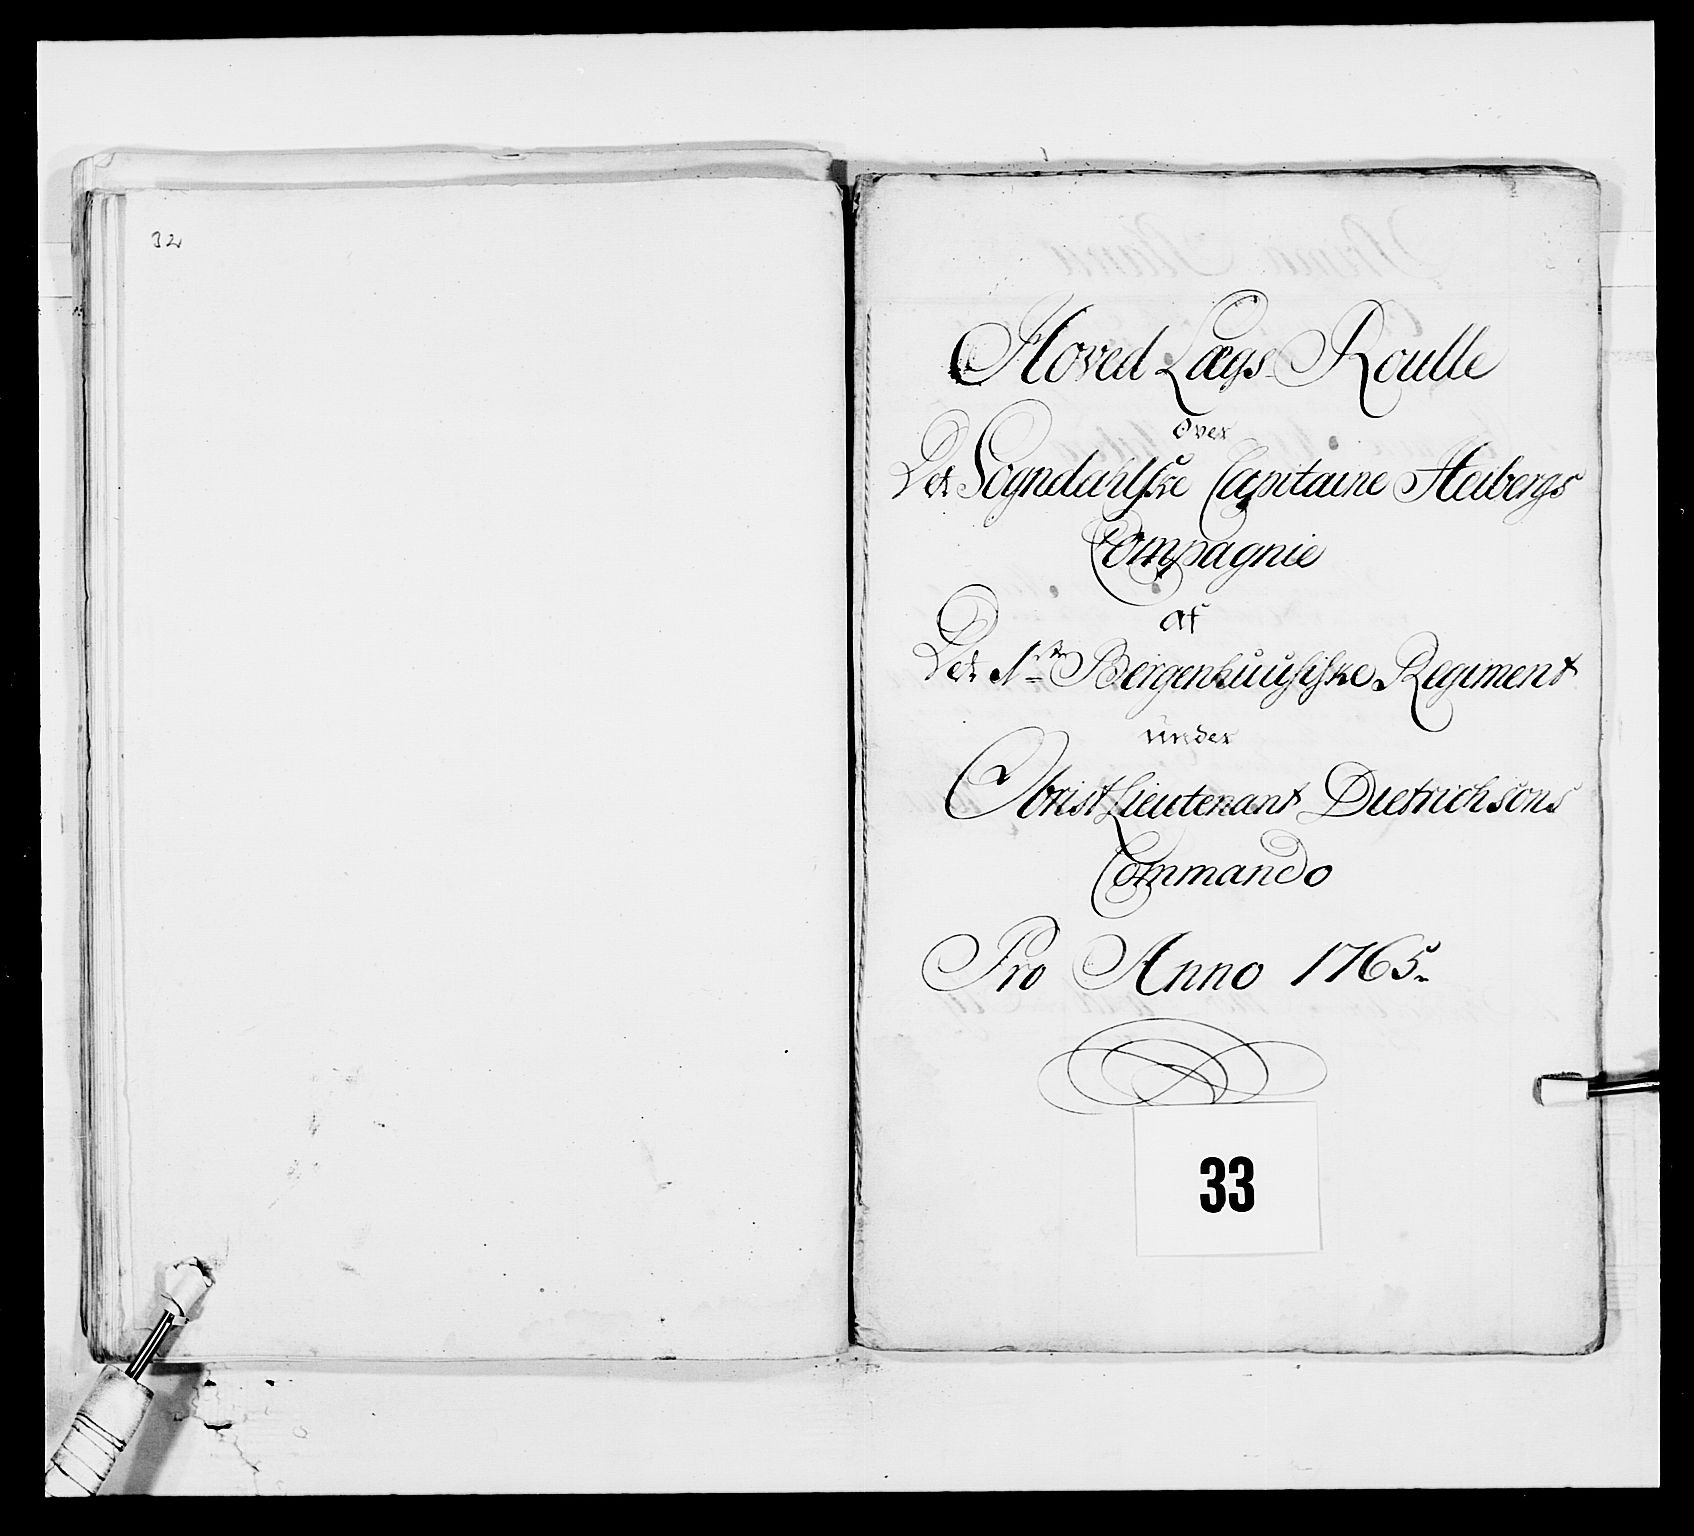 32
Hoved Lægs Roulle
over
Det Sogndahlske Capitaine Heibergs
Compagnie
af
Det 1ste Bergenhuusiske Regiment
under
Obrist Lieutenant Dietrichsons
Commando
Pro Anno 1765
33